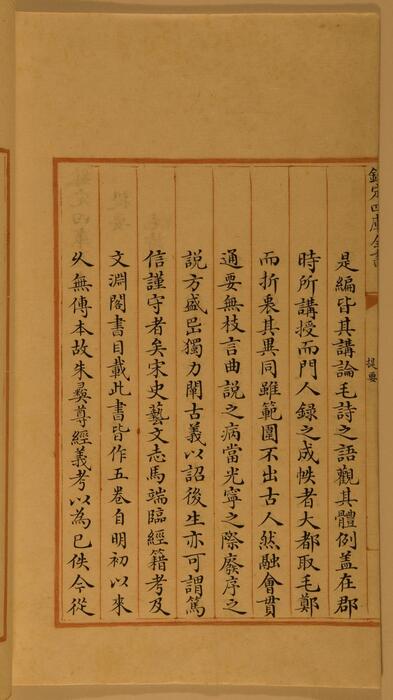 欽定四庫全書
提要
是編皆其講論毛詩之語觀其體例蓋在郡
時所講授而門人録之成帙者大都取毛鄭
而折衷其異同雖範圍不出古人然融會貫
通要無枝言曲説之病當光寧之際廢序之
説方盛昌獨力闡古義以詔後生亦可謂篤
信謹守者矣宋史藝文志馬端臨經籍考及
文淵閣書目載此書皆作五卷自明初以來
久無傳本故朱彛尊經義考以為已佚今從